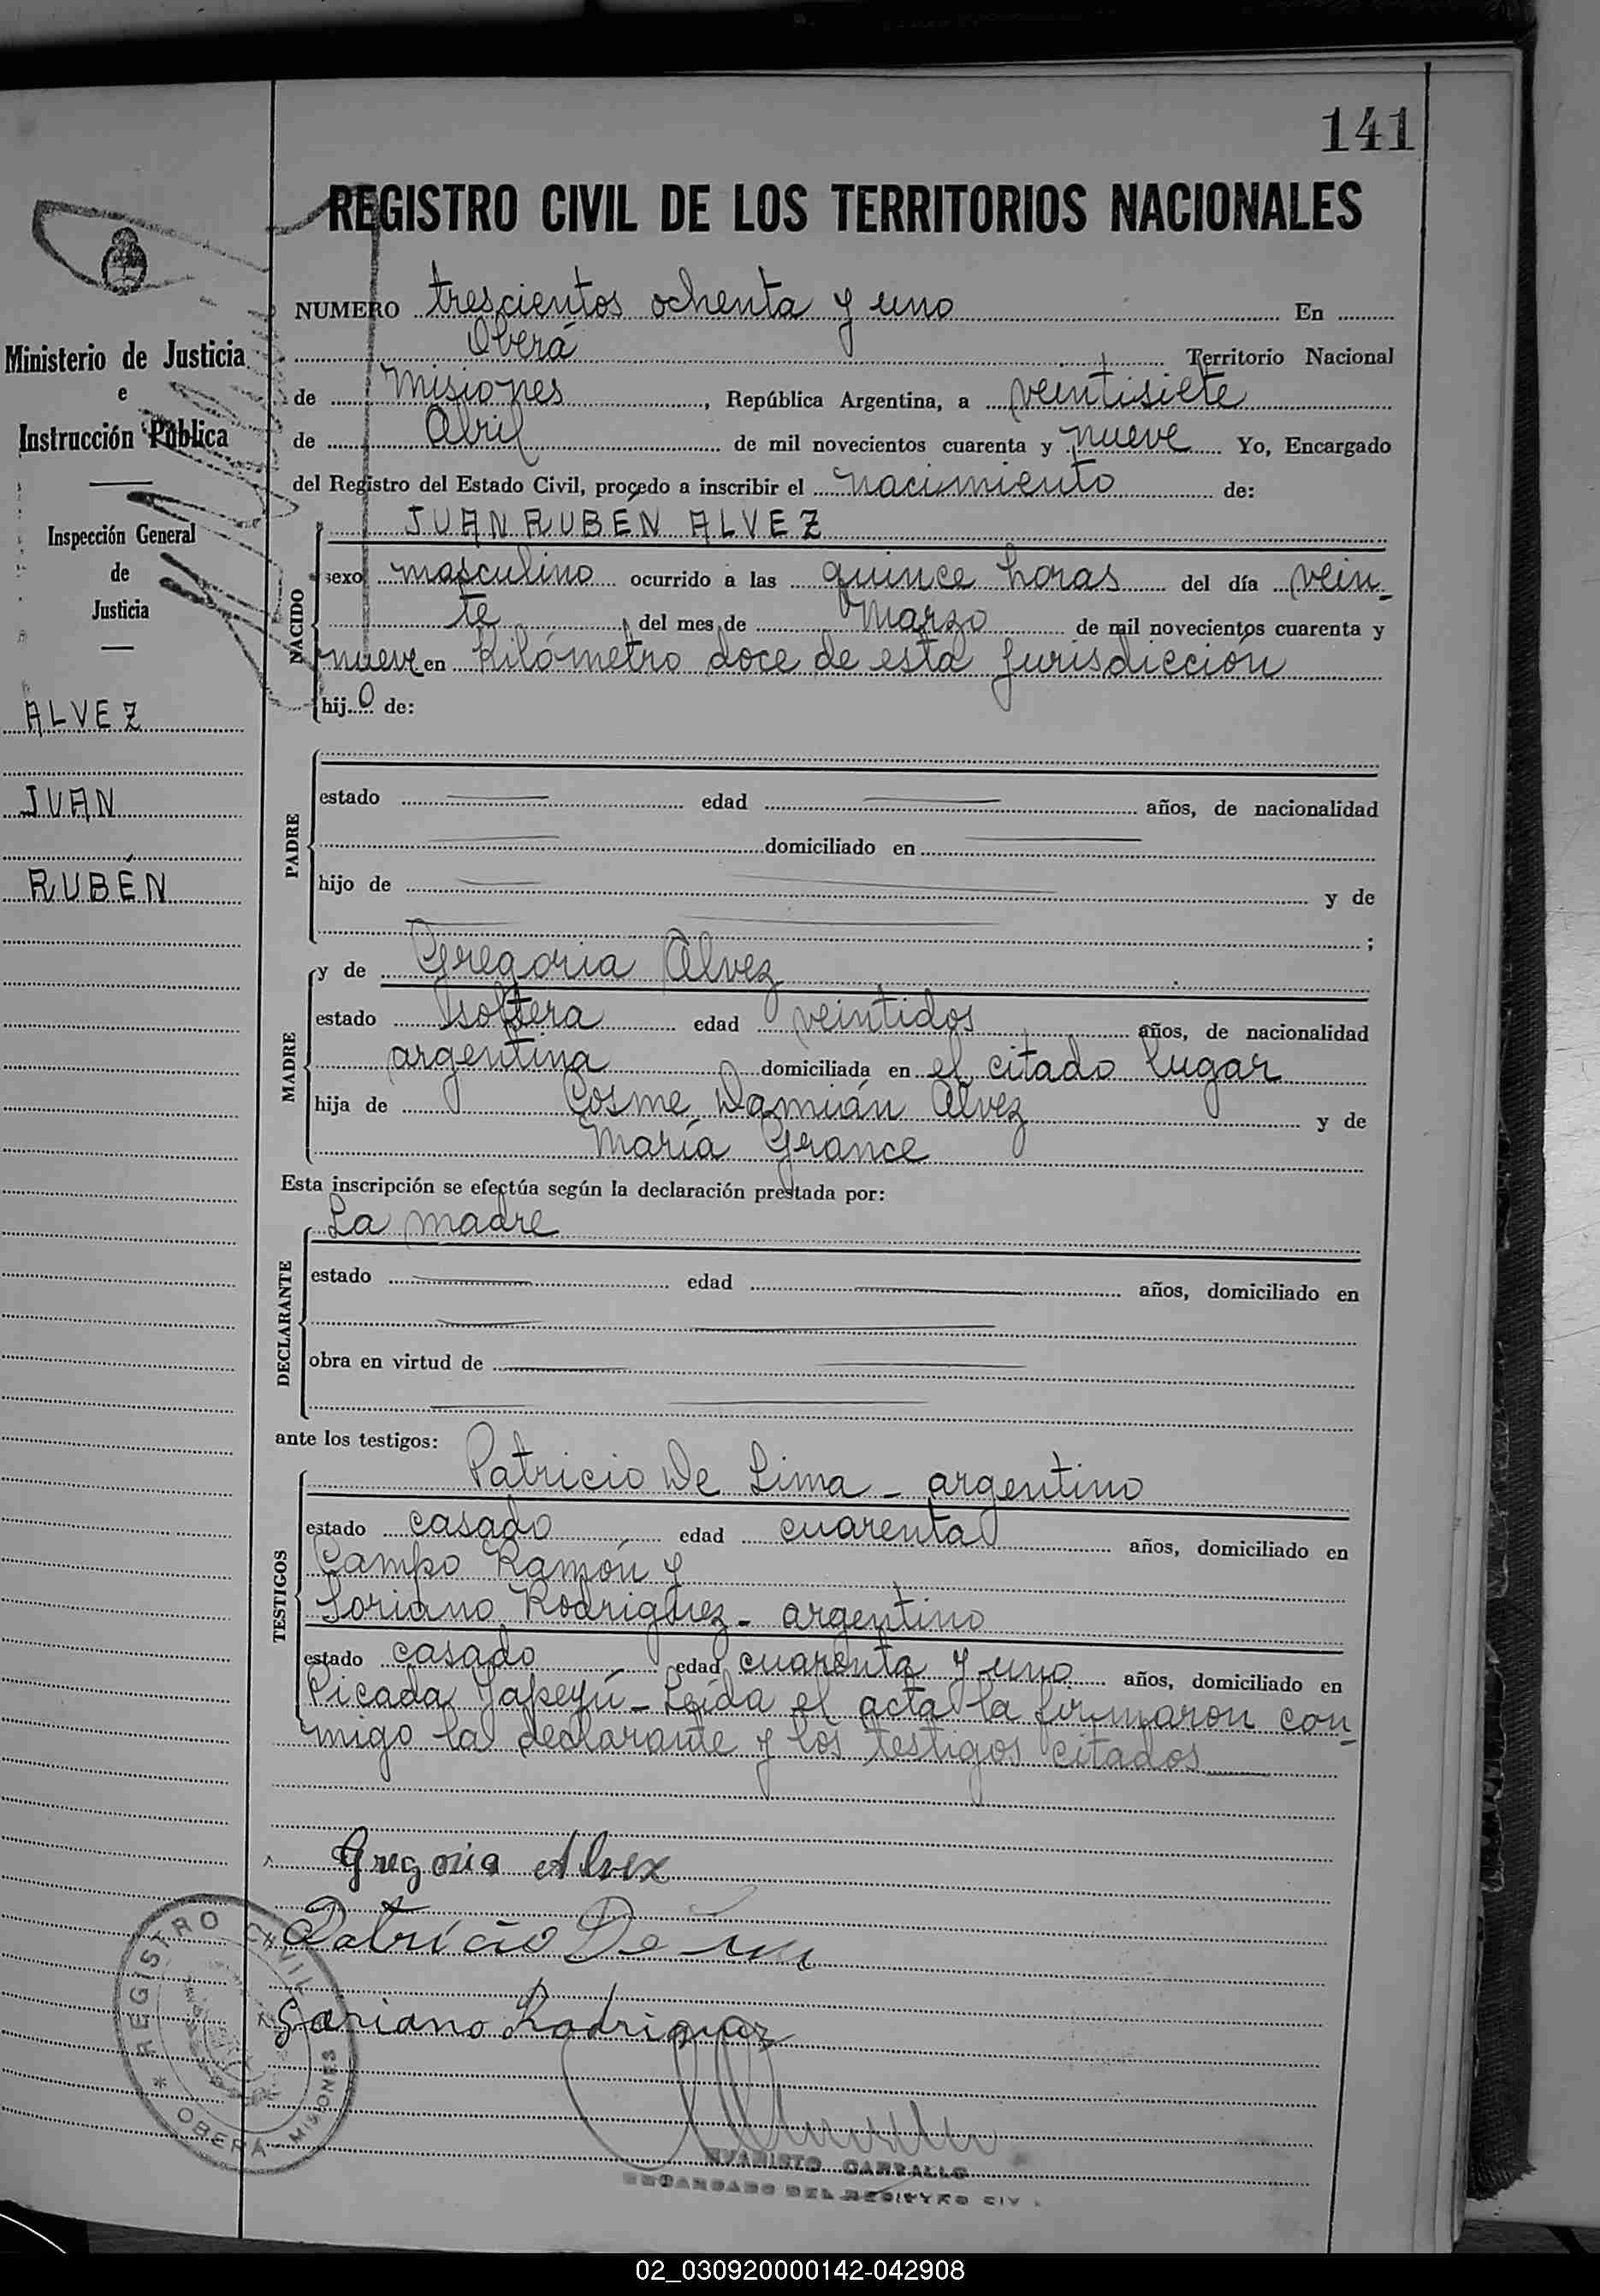 141
REGISTRO CIVIL DE LOS TERRITORIOS NACIONALES
Ministerio de Justicia
e
Instrucción Pública
Inspección General
de
Justicia
ALVEZ
JUAN
RUBÉN
NUMERO trescientos ochenta y uno En
Oberá Territorio Nacional
de Misiones, República Argentina, a veintisiete
de Abril de mil novecientos cuarenta y nueve Yo, Encargado
del Registro del Estado Civil, procedo a inscribir el nacimiento de:
NACIDO
JUAN RUBÉN ALVEZ
sexo masculino ocurrido a las quince horas del día vein-
te del mes de Marzo de mil novecientos cuarenta y
nueve en Kilómetro doce de esta jurisdicción
hijo de:
PADRE
estado edad años, de nacionalidad
domiciliado en
hijo de y de
;
MADRE
y de Gregoria Alvez
estado soltera edad veintidos años, de nacionalidad
argentina domiciliada en el citado lugar
hija de Cosme Damián Alvez y de
María Grance
Esta inscripción se efectúa según la declaración prestada por:
DECLARANTE
La madre
estado edad años, domiciliado en
obra en virtud de
ante los testigos:
TESTIGOS
Patricio De Lima - argentino
estado casado edad cuarenta años, domiciliado en
Campo Ramón y
Soriano Rodriguez - argentino
estado casado edad cuarenta y uno años, domiciliado en
Picada Yapeyú - Leída el acta la firmaron con-
migo la declarante y los testigos citados
Gregoria Alvez
Patricio De
Soriano Rodriguez
REGISTRO CIVIL
* OBERA - MISIONES
EVARISTO CARBALLO
ENCARGADO DEL REGISTRO CIVIL
02_030920000142-042908